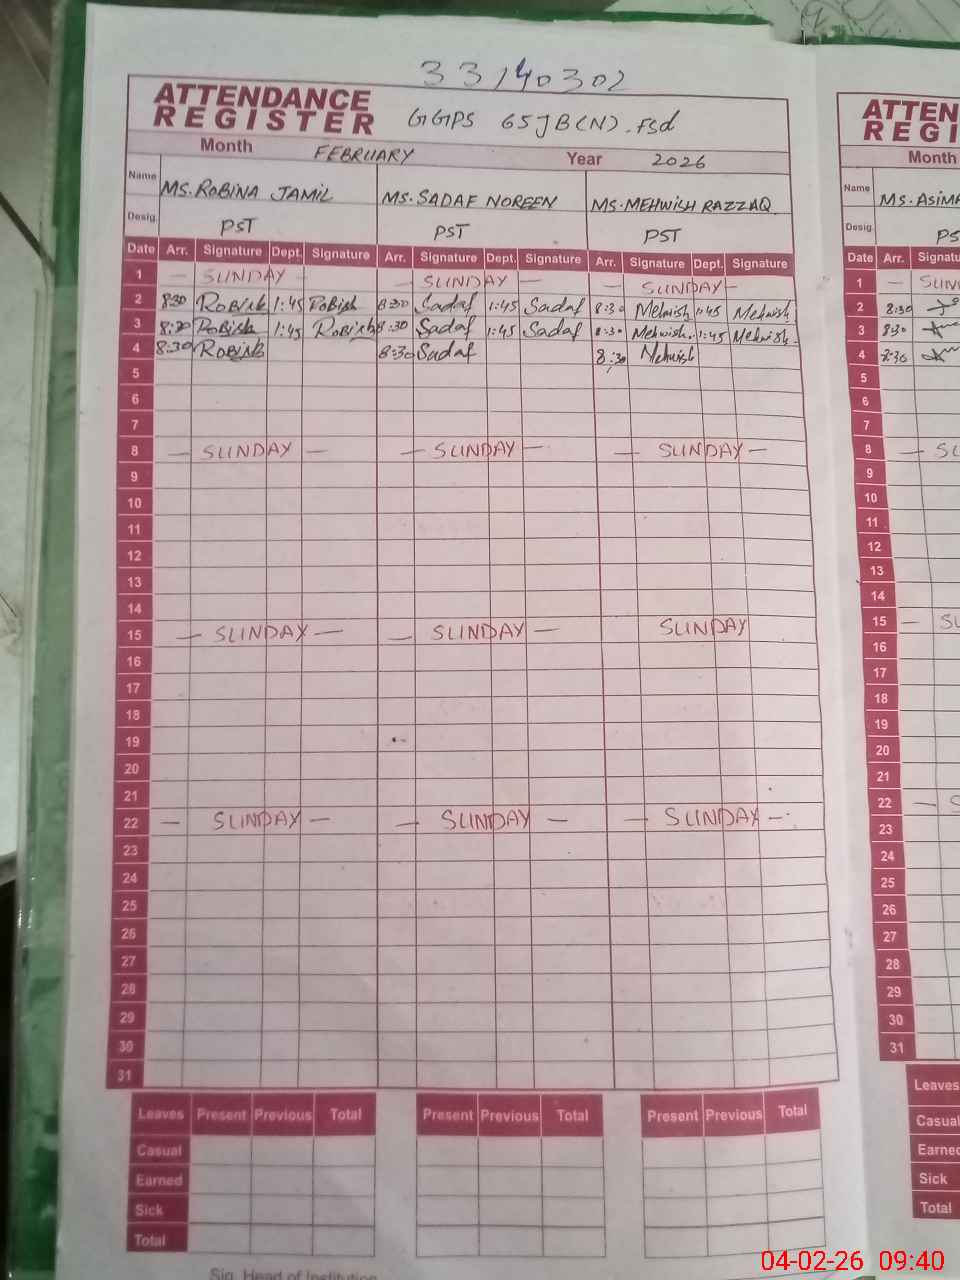 33140302
ATTENDANCE REGISTER GGPS 65JB(N).Fsd
Month FEBRUARY Year 2026
Name MS.ROBINA JAMIL MS.SADAF NOREEN MS.MEHWISH RAZZAQ
Desig. PST PST PST
Date Arr. Signature Dept. Signature Arr. Signature Dept. Signature Arr. Signature Dept. Signature
1 — SUNDAY — — SUNDAY — — SUNDAY —
2 8:30 1:45 8:30 Sadaf 1:45 Sadaf 8:30 Mehwish 1:45 Mehwish
3 8:30 1:45 8:30 Sadaf 1:45 Sadaf 8:30 Mehwish 1:45 Mehwish
4 8:30 8:30 Sadaf 8:30 Mehwish
5
6
7
8 — SUNDAY — — SUNDAY — — SUNDAY —
9
10
11
12
13
14
15 — SUNDAY — — SUNDAY — SUNDAY
16
17
18
19
20
21
22 — SUNDAY — — SUNDAY — — SUNDAY —
23
24
25
26
27
28
29
30
31
Leaves Present Previous Total Present Previous Total Present Previous Total
Casual
Earned
Sick
Total
Sig. Head of Institution
ATTEN
REGI
Month
Name MS.ASIMA
Desig. PS
Date Arr. Signatu
1 — SUN
2 8:30
3 8:30
4 8:30
5
6
7
8 — SU
9
10
11
12
13
14
15 — SU
16
17
18
19
20
21
22 — S
23
24
25
26
27
28
29
30
31
Leaves
Casual
Earned
Sick
Total
04-02-26 09:40